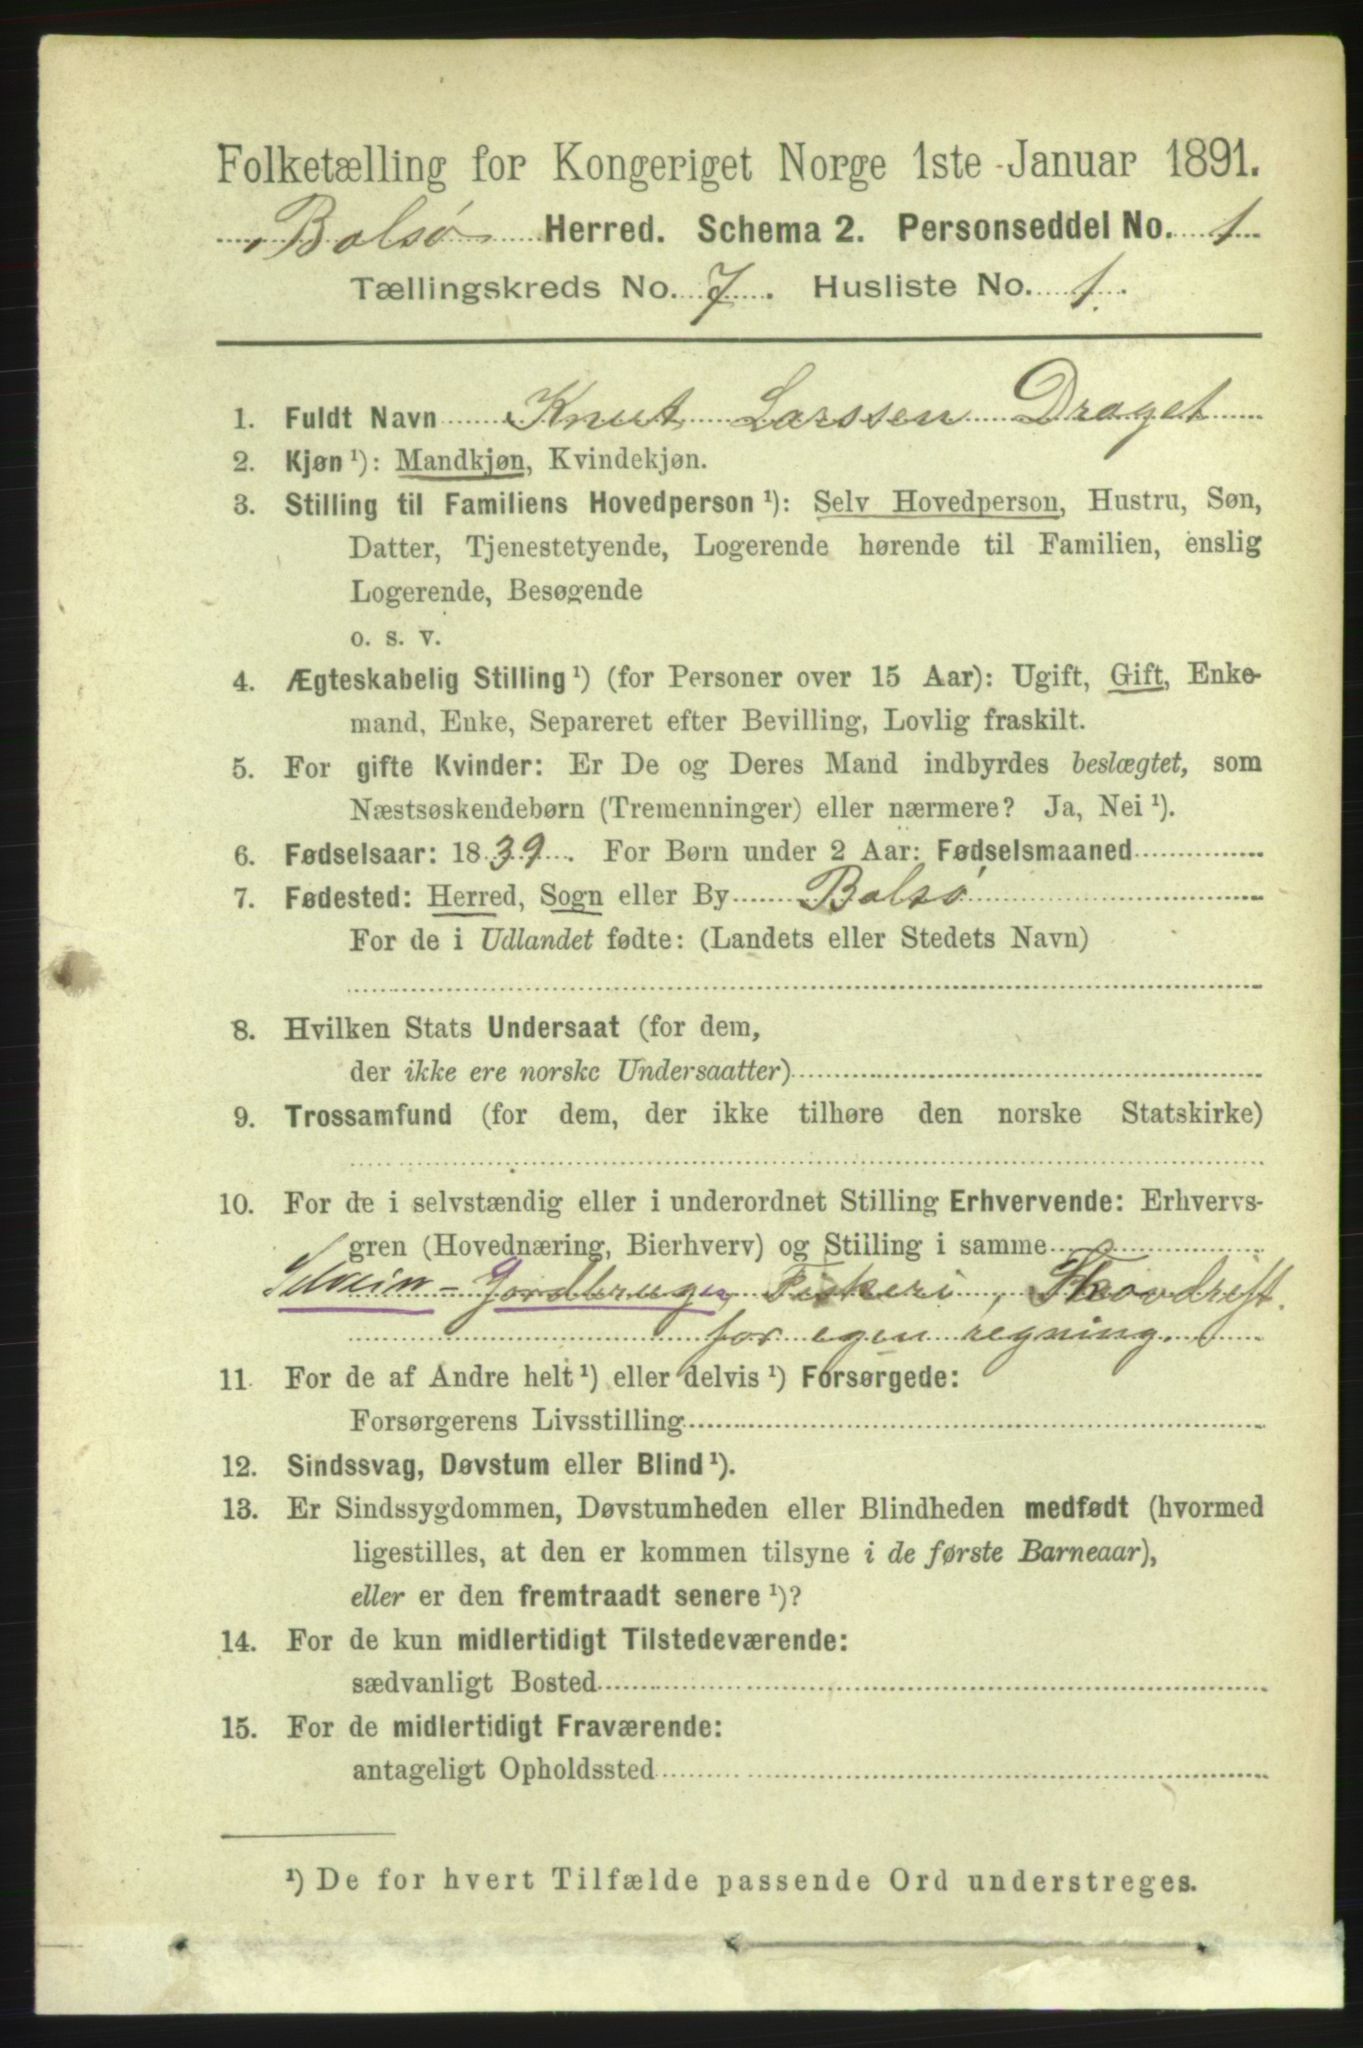 Folketælling for Kongeriget Norge 1ste Januar 1891.
Bolsø Herred. Schema 2. Personseddel No. 1
Tællingskreds No. 7. Husliste No. 1.
1. Fuldt Navn Knut Larssen Draget
2. Kjøn ¹): Mandkjøn, Kvindekjøn.
3. Stilling til Familiens Hovedperson ¹): Selv Hovedperson, Hustru, Søn,
Datter, Tjenestetyende, Logerende hørende til Familien, enslig
Logerende, Besøgende
o. s. v.
4. Ægteskabelig Stilling ¹) (for Personer over 15 Aar): Ugift, Gift, Enke-
mand, Enke, Separeret efter Bevilling, Lovlig fraskilt.
5. For gifte Kvinder: Er De og Deres Mand indbyrdes beslægtet, som
Næstsøskendebørn (Tremenninger) eller nærmere? Ja, Nei ¹).
6. Fødselsaar: 1839. For Børn under 2 Aar: Fødselsmaaned
7. Fødested: Herred, Sogn eller By Bolsø
For de i Udlandet fødte: (Landets eller Stedets Navn)
8. Hvilken Stats Undersaat (for dem,
der ikke ere norske Undersaatter)
9. Trossamfund (for dem, der ikke tilhøre den norske Statskirke)
10. For de i selvstændig eller i underordnet Stilling Erhvervende: Erhvervs-
gren (Hovednæring, Bierhverv) og Stilling i samme
Selveier-Gordbruger, Fiskeri, Skovdrift.
for egen regning.
11. For de af Andre helt ¹) eller delvis ¹) Forsørgede:
Forsørgerens Livsstilling
12. Sindssvag, Døvstum eller Blind ¹).
13. Er Sindssygdommen, Døvstumheden eller Blindheden medfødt (hvormed
ligestilles, at den er kommen tilsyne i de første Barneaar),
eller er den fremtraadt senere ¹)?
14. For de kun midlertidigt Tilstedeværende:
sædvanligt Bosted
15. For de midlertidigt Fraværende:
antageligt Opholdssted
¹) De for hvert Tilfælde passende Ord understreges.